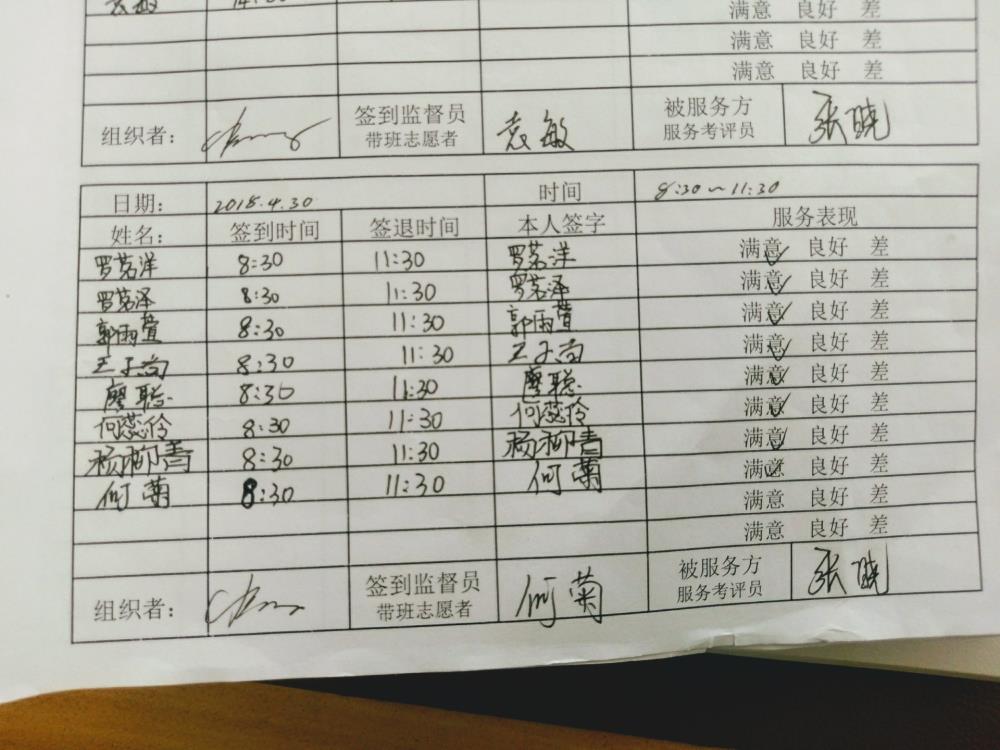 袁敏
满意 良好 差
满意 良好 差
满意 良好 差
组织者： 签到监督员 带班志愿者 袁敏 被服务方 服务考评员 张晓
日期： 2018.4.30 时间 8:30~11:30
姓名： 签到时间 签退时间 本人签字 服务表现
罗茗洋 8:30 11:30 罗茗洋 满意 良好 差
罗茗泽 8:30 11:30 罗茗泽 满意 良好 差
郭雨萱 8:30 11:30 郭雨萱 满意 良好 差
王子尚 8:30 11:30 王子尚 满意 良好 差
廖聪 8:30 11:30 廖聪 满意 良好 差
何蕊伶 8:30 11:30 何蕊伶 满意 良好 差
杨柳青 8:30 11:30 杨柳青 满意 良好 差
何菊 8:30 11:30 何菊 满意 良好 差
满意 良好 差
满意 良好 差
组织者： 签到监督员 带班志愿者 何菊 被服务方 服务考评员 张晓